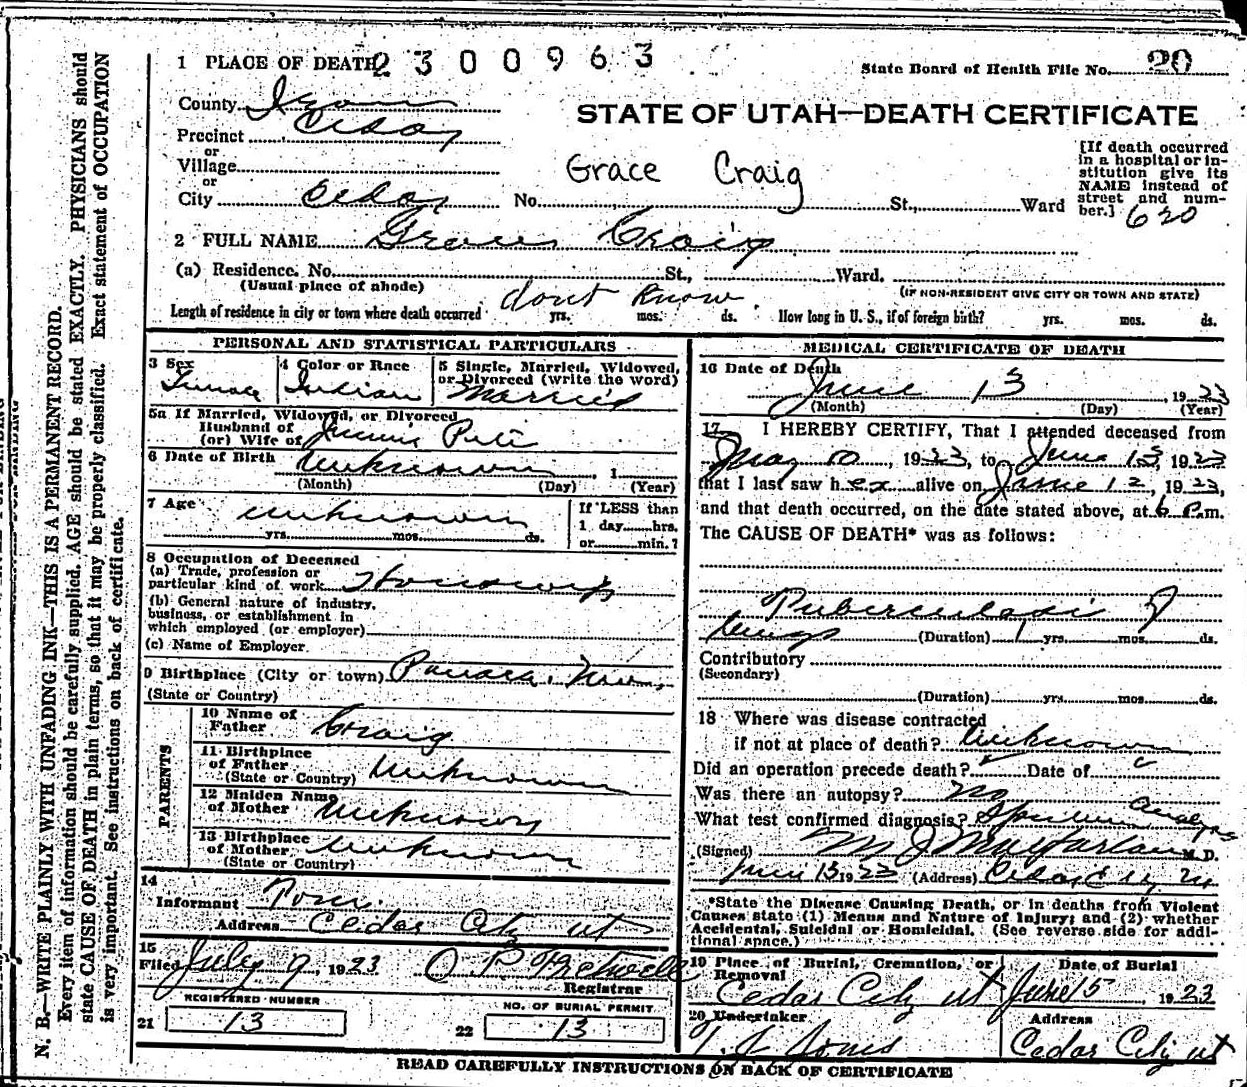 1 PLACE OF DEATH 2 3 0 0 9 6 3
State Board of Health File No. 20
County Iron
STATE OF UTAH—DEATH CERTIFICATE
Precinct Cedar
or
Village
or
City Cedar No. St., Ward
Grace Craig
[If death occurred
in a hospital or in-
stitution give its
NAME instead of
street and num-
ber.] 620
2 FULL NAME Grace Craig
(a) Residence. No. St., Ward.
(Usual place of abode) (IF NON-RESIDENT GIVE CITY OR TOWN AND STATE)
Length of residence in city or town where death occurred dont know yrs. mos. ds. How long in U. S., if of foreign birth? yrs. mos. ds.
PERSONAL AND STATISTICAL PARTICULARS
3 Sex Female
4 Color or Race Indian
5 Single, Married, Widowed,
or Divorced (write the word)
Married
5a If Married, Widowed, or Divorced
Husband of
(or) Wife of Jimmie Pete
6 Date of Birth unknown, 1
(Month) (Day) (Year)
7 Age unknown
yrs. mos. ds.
If LESS than
1 day hrs.
or min.?
8 Occupation of Deceased
(a) Trade, profession or
particular kind of work Housewife
(b) General nature of industry,
business, or establishment in
which employed (or employer)
(c) Name of Employer
9 Birthplace (City or town) Panaca,
(State or Country)
PARENTS
10 Name of
Father Craig
11 Birthplace
of Father Unknown
(State or Country)
12 Maiden Name
of Mother Unknown
13 Birthplace
of Mother unknown
(State or Country)
14
Informant
Address Cedar City ut
15
Filed July 9, 1923
Registrar
REGISTERED NUMBER
21 13
NO. OF BURIAL PERMIT
22 13
MEDICAL CERTIFICATE OF DEATH
16 Date of Death
June 13, 1923
(Month) (Day) (Year)
17 I HEREBY CERTIFY, That I attended deceased from
May 10, 1923, to June 13, 1923
that I last saw her alive on June 12, 1923,
and that death occurred, on the date stated above, at 6 P.m.
The CAUSE OF DEATH* was as follows:
Tuberculosis of
lungs (Duration) 1 yrs. mos. ds.
Contributory
(Secondary)
(Duration) yrs. mos. ds.
18 Where was disease contracted
if not at place of death? unknown
Did an operation precede death? Date of
Was there an autopsy? no
What test confirmed diagnosis? Specimen analysis
(Signed) M J Macfarlane M. D.
June 13 1923 (Address) Cedar City Ut
*State the Disease Causing Death, or in deaths from Violent
Causes state (1) Means and Nature of Injury; and (2) whether
Accidental, Suicidal or Homicidal. (See reverse side for addi-
tional space.)
19 Place of Burial, Cremation, or
Removal
Cedar City ut
Date of Burial
June 15, 1923
20 Undertaker
T. J. Jones
Address
Cedar City ut
READ CAREFULLY INSTRUCTIONS ON BACK OF CERTIFICATE
N. B.—WRITE PLAINLY WITH UNFADING INK—THIS IS A PERMANENT RECORD.
Every item of information should be carefully supplied. AGE should be stated EXACTLY. PHYSICIANS should
state CAUSE OF DEATH in plain terms, so that it may be properly classified. Exact statement of OCCUPATION
is very important. See instructions on back of certificate.